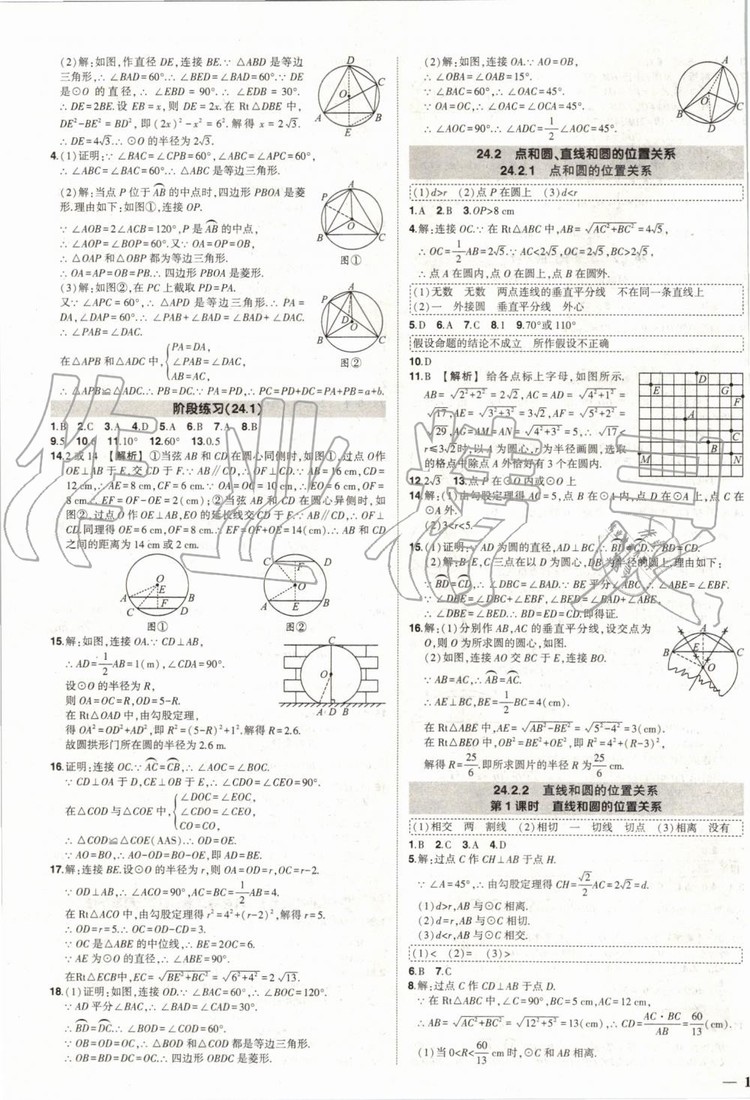 (2)解:如图,作直径 DE,连接 BE.∵ △ABD 是等边
三角形,∴ ∠BAD=60°.∴ ∠BED=∠BAD=60°.∵ DE
是⊙O 的直径,∴ ∠EBD=90°.∴ ∠EDB=30°.
∴ DE=2BE.设 EB=x,则 DE=2x.在 Rt△DBE 中,
DE²-BE²=BD²,即(2x)²-x²=6².解得 x=2√3.
∴ DE=4√3.∴ ⊙O 的半径为 2√3.
4.(1)证明:∵ ∠BAC=∠CPB=60°,∠ABC=∠APC=60°,
∴ ∠ABC=∠BAC=60°.∴ △ABC 是等边三角形.
(2)解:当点 P 位于AB的中点时,四边形 PBOA 是菱
形.理由如下:如图①,连接 OP.
∵ ∠AOB=2∠ACB=120°,P 是AB的中点,
∴ ∠AOP=∠BOP=60°.又∵ OA=OP=OB,
∴ △OAP 和△OBP 都为等边三角形.
∴ OA=AP=OB=PB.∴ 四边形 PBOA 是菱形.
(3)解:如图②,在 PC 上截取 PD=PA.
又∵ ∠APC=60°,∴ △APD 是等边三角形.∴ PA=
DA,∠DAP=60°.∴ ∠PAB+∠BAD=∠BAD+∠DAC.
∴ ∠PAB=∠DAC.
在△APB 和△ADC 中,{PA=DA, ∠PAB=∠DAC, AB=AC,
∴ △APB≌△ADC.∴ PB=DC.∵ PA=PD,∴ PC=PD+DC=PA+PB=a+b.
图①
图②
阶段练习(24.1)
1.B 2.C 3.A 4.D 5.A 6.B 7.A 8.B
9.5 10.4 11.10° 12.60° 13.0.5
14.2 或 14 【解析】①当弦 AB 和 CD 在圆心同侧时,如图①,过点 O 作
OE⊥AB 于 E,交 CD 于 F.∵ AB//CD,∴ OF⊥CD.∵ AB=16 cm,CD=
12 cm,∴ AE=8 cm,CF=6 cm.∵ OA=OC=10 cm,∴ EO=6 cm,OF=
8 cm.∴ EF=OF-OE=2(cm);②当弦 AB 和 CD 在圆心异侧时,如
图②,过点 O 作 OE⊥AB,EO 的延长线交 CD 于 F.∵ AB//CD,∴ OF⊥
CD.同理得 OE=6 cm,OF=8 cm.∴ EF=OF+OE=14(cm).∴ AB 和 CD
之间的距离为 14 cm 或 2 cm.
图①
图②
15.解:如图,连接 OA.∵ CD⊥AB,
∴ AD=1/2AB=1(m),∠CDA=90°.
设⊙O 的半径为 R,
则 OA=OC=R,OD=5-R.
在 Rt△OAD 中,由勾股定理,
得 OA²=OD²+AD²,即 R²=(5-R)²+1².解得 R=2.6.
故圆拱形门所在圆的半径为 2.6 m.
16.证明:连接 OC.∵ AC=CB,∴ ∠AOC=∠BOC.
∵ CD⊥OA 于 D,CE⊥OB 于 E,∴ ∠CDO=∠CEO=90°.
在△COD 与△COE 中,{∠DOC=∠EOC, ∠CDO=∠CEO, CO=CO,
∴ △COD≌△COE(AAS).∴ OD=OE.
∵ AO=BO,∴ AO-OD=BO-OE,即 AD=BE.
17.解:连接 BE.设⊙O 的半径为 r,则 OA=OD=r,OC=r-2.
∵ OD⊥AB,∴ ∠ACO=90°,AC=BC=1/2AB=4.
在 Rt△ACO 中,由勾股定理得 r²=4²+(r-2)²,解得 r=5.
∴ OD=r=5.∴ OC=OD-CD=3.
∵ OC 是△ABE 的中位线,∴ BE=2OC=6.
∵ AE 为⊙O 的直径,∴ ∠ABE=90°.
在Rt△ECB中,EC=√(BE²+BC²)=√(6²+4²)=2√13.
18.(1)证明:如图,连接 OD.∵ ∠BAC=60°,∴ ∠BOC=120°.
∵ AD 平分∠BAC,∴ ∠BAD=∠CAD=30°.
∴ BD=DC.∴ ∠BOD=∠COD=60°.
∵ OB=OD=OC,∴ △BOD 和△COD 都是等边三角形.
∴ OB=BD=DC=OC.∴ 四边形 OBDC 是菱形.
(2)解:如图,连接 OA.∵ AO=OB,
∴ ∠OBA=∠OAB=15°.
∵ ∠BAC=60°,∴ ∠OAC=45°.
∵ OA=OC,∴ ∠OAC=∠OCA=45°.
∴ ∠AOC=90°.∴ ∠ADC=1/2∠AOC=45°.
24.2 点和圆、直线和圆的位置关系
24.2.1 点和圆的位置关系
(1)d>r (2)点 P 在圆上 (3)d<r
1.A 2.B 3.OP>8 cm
4.解:连接 OC.∵ 在 Rt△ABC 中,AB=√(AC²+BC²)=4√5,
∴ OC=1/2AB=2√5.∵ AC<2√5,OC=2√5,BC>2√5,
∴ 点 A 在圆内,点 O 在圆上,点 B 在圆外.
(1)无数 无数 两点连线的垂直平分线 不在同一条直线上
(2)一 外接圆 垂直平分线 外心
5.D 6.A 7.C 8.1 9.70°或 110°
假设命题的结论不成立 所作假设不正确
10.D
11.B 【解析】给各点标上字母,如图所示.
AB=√(2²+2²)=2√2,AC=AD=√(4²+1²)=
√17,AE=√(3²+3²)=3√2,AF=√(5²+2²)=
√29,AG=AM=AN=√(4²+3²)=5,∴ √17<
r≤3√2时,以 A 为圆心,r 为半径画圆,选取
的格点中除点 A 外恰好有 3 个在圆内.
12.2√3 13.点 P 在⊙O 内或⊙O 上
14.解:(1)由勾股定理得 AC=5,点 B 在⊙A 内,点 D 在⊙A 上,点 C
在⊙A 外.
(2)3<r<5.
15.(1)证明:∵ AD 为圆的直径,AD⊥BC,∴ BD=CD.∴ BD=CD.
(2)解:B,E,C 三点在以 D 为圆心,DB 为半径的圆上.理由如下:
∵ BD=CD,∴ ∠DBC=∠BAD.∵ BE 平分∠ABC,∴ ∠ABE=∠EBF.
∵ ∠DBE=∠DBC+∠EBF,∠BED=∠BAD+∠ABE,
∴ ∠DBE=∠BED.∴ BD=ED=CD.即得证.
16.解:(1)分别作 AB,AC 的垂直平分线,设交点为
O,则 O 为所求圆的圆心,如图.
(2)如图,连接 AO 交 BC 于 E,连接 BO.
∵ AB=AC,∴ AB=AC.
∴ AE⊥BC,BE=1/2BC=4(cm).
在 Rt△ABE 中,AE=√(AB²-BE²)=√(5²-4²)=3(cm).
在 Rt△BEO 中,OB²=BE²+OE²,即 R²=4²+(R-3)²,
解得 R=25/6.即所求圆片的半径为25/6 cm.
24.2.2 直线和圆的位置关系
第 1 课时 直线和圆的位置关系
(1)相交 两 割线 (2)相切 一 切线 切点 (3)相离 没有
1.B 2.C 3.A 4.D
5.解:过点 C 作 CH⊥AB 于点 H.
∵ ∠A=45°,∴ 由勾股定理得 CH=√2/2AC=2√2=d.
(1)d>r,AB 与⊙C 相离.
(2)d=r,AB 与⊙C 相切.
(3)d<r,AB 与⊙C 相交.
(1)< (2)= (3)>
6.B 7.C
8.解:过点 C 作 CD⊥AB 于点 D.
∵ 在 Rt△ABC 中,∠C=90°,BC=5 cm,AC=12 cm,
∴ AB=√(AC²+BC²)=√(12²+5²)=13(cm),∴ CD=AC·BC/AB=60/13(cm).
(1)当 0<R<60/13 cm 时,⊙C 和 AB 相离.
— 1